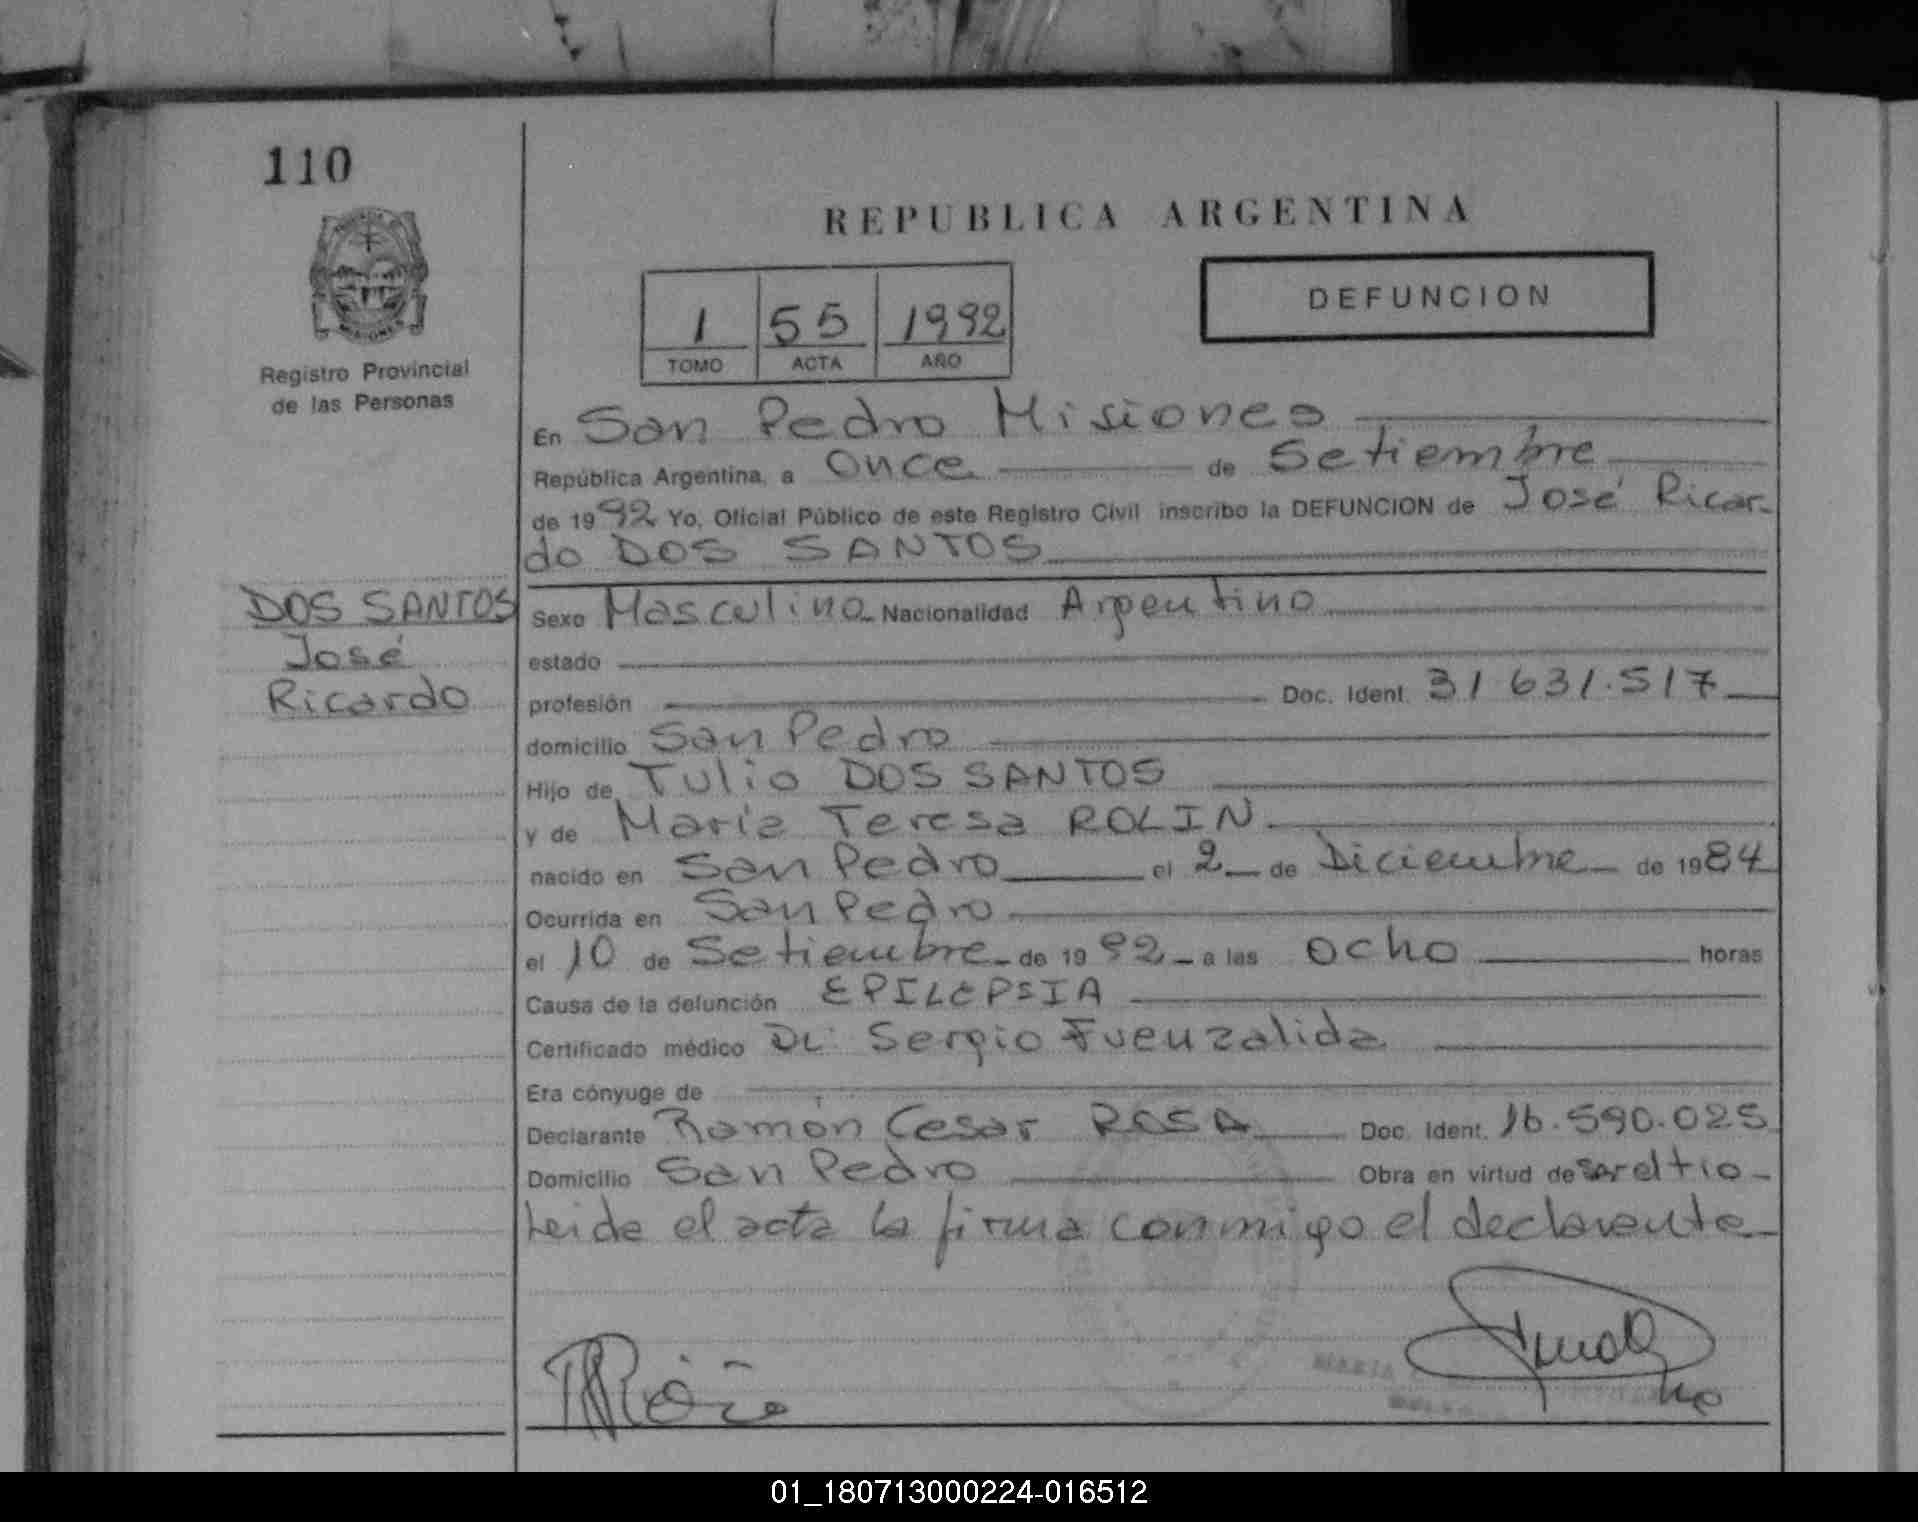 110
REPUBLICA ARGENTINA
DEFUNCION
1 55 1992
TOMO ACTA AÑO
Registro Provincial
de las Personas
En San Pedro Misiones
República Argentina, a Once de Setiembre
de 1992 Yo, Oficial Público de este Registro Civil inscribo la DEFUNCION de José Ricar-
do DOS SANTOS
DOS SANTOS
José
Ricardo
Sexo Masculino Nacionalidad Argentino
estado
profesión Doc. Ident. 31 631.517
domicilio San Pedro
Hijo de Tulio DOS SANTOS
y de María Teresa ROLIN
nacido en San Pedro el 2 de Diciembre de 1984
Ocurrida en San Pedro
el 10 de Setiembre de 1992 a las ocho horas
Causa de la defunción EPILEPSIA
Certificado médico Dr. Sergio Fuenzalida
Era cónyuge de
Declarante Ramón Cesar ROSA Doc. Ident. 16.590.025
Domicilio San Pedro Obra en virtud de ser el tio
Leida el acta la firma conmigo el declarante
MARIA
01_180713000224-016512